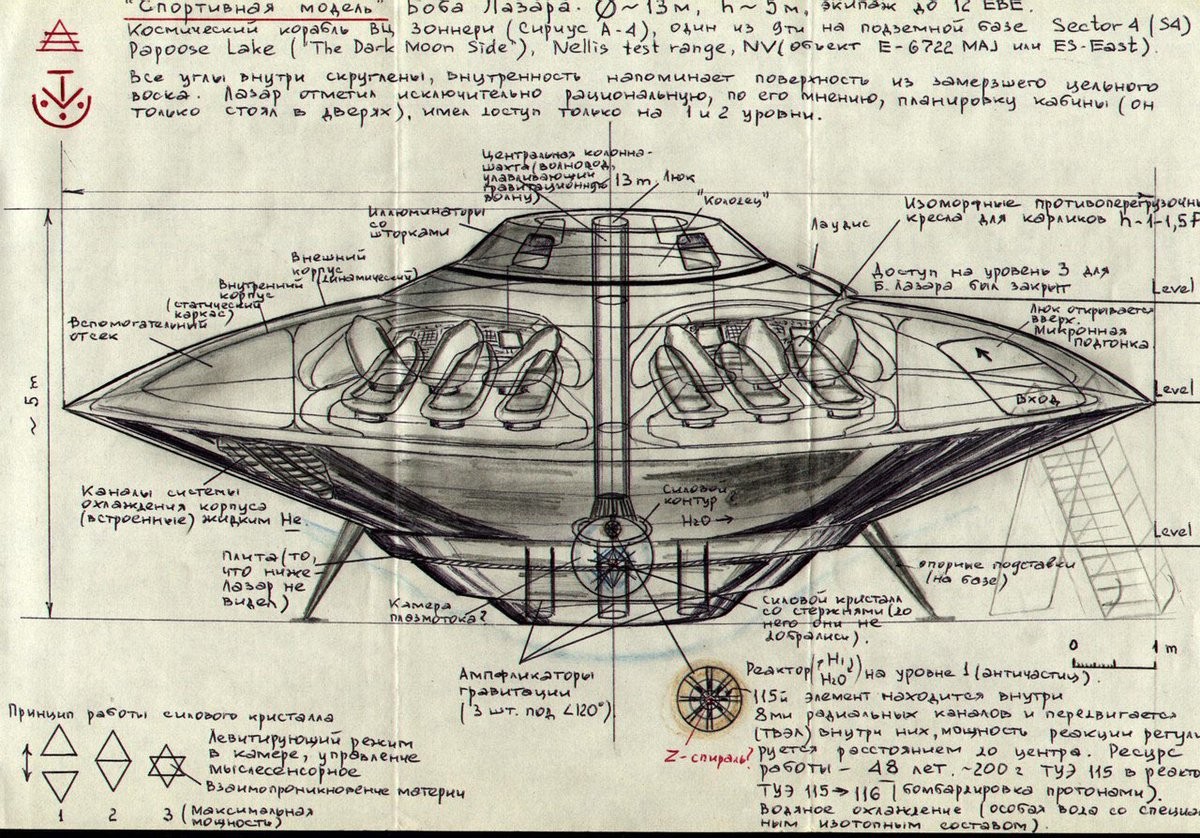 "Спортивная модель" Боба Лазара. Ø~13м, h~5м, экипаж до 12 ЕВЕ.
Космический корабль ВЦ Зоннери (Сириус А-4), один из 9ти на подземной базе Sector 4 (S4)
Papoose Lake ("The Dark Moon Side"), Nellis test range, NV (объект E-6722 MAJ или ES-East).
Все углы внутри скруглены, внутренность напоминает поверхность из замерзшего цельного
воска. Лазар отметил исключительно рациональную, по его мнению, планировку кабины (он
только стоял в дверях), имел доступ только на 1 и 2 уровни.
Центральная колонна-
шахта (волновод,
улавливающий
гравитационную
волну)
13 m
Люк
"Колодец"
Иллюминаторы
со
шторками
Лаудис
Изоморфные противоперегрузочны
кресла для карликов h~1-1,5
Внешний
корпус
(динамический)
Внутренний
корпус
(статический
каркас)
Вспомогательный
отсек
Доступ на уровень 3 для
Б. Лазара был закрыт
Level
Люк открывается
вверх.
Микронная
подгонка
Level
Вход
~ 5 m
Каналы системы
охлаждения корпуса
(встроенные) жидким He.
Силовой
контур
H2O →
Level
Плита (то,
что ниже
Лазар не
видел)
опорные подставки
(на базе)
Камера
плазмотока?
Силовой кристалл
со стержнями (до
него они не
добрались).
0 1 m
Амплификаторы
гравитации
(3 шт. под ∠120°)
Реактор (H1 H2O) на уровне 1 (античастиц).
115й элемент находится внутри
8ми радиальных каналов и передвигается
(ТВЭЛ) внутри них, мощность реакции регули
руется расстоянием до центра. Ресурс
работы - 48 лет. ~200г ТУЭ 115 в реакто
ТУЭ 115→116 (бомбардировка протонами).
Водяное охлаждение (особая вода со специа
ным изотопным составом).
Z-спираль?
Принцип работы силового кристалла
Левитирующий режим
в камере, управление
мыслесенсорное
Взаимопроникновение материи
1 2 3 (Максимальная
мощность)